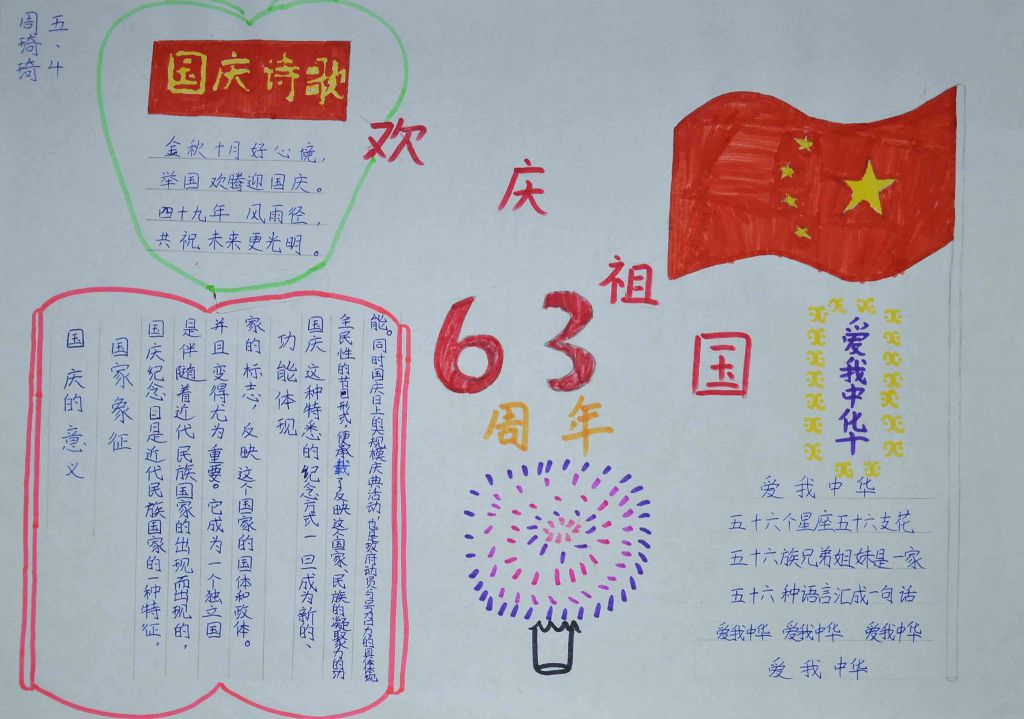 五、4
周琦琦
国庆诗歌
金秋十月好心境，
举国欢腾迎国庆。
四十九年 风雨径，
共祝未来更光明。
欢庆祖国
63
周年
国庆的意义
国家象征
国庆纪念日是近代民族国家的一种特征，
是伴随着近代民族国家的出现而出现的，
并且变得尤为重要。它成为一个独立国
家的标志，反映这个国家的国体和政体。
功能体现
国庆这种特悉的纪念方式一旦成为新的、
全民性的节日形式，便承载了反映这个国家、民族的凝聚力的功
能。同时国庆日上的大规模庆典活动，也是政府动员与号召力的具体体现
爱我中华
爱我中华
五十六个星座五十六支花
五十六族兄弟姐妹是一家
五十六种语言汇成一句话
爱我中华 爱我中华 爱我中华
爱我中华